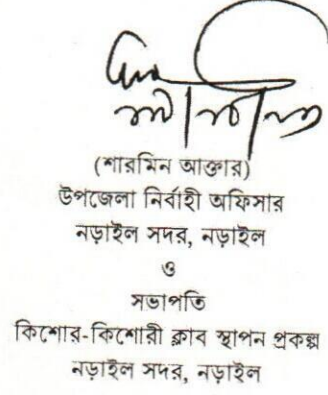 (শারমিন আক্তার)
উপজেলা নির্বাহী অফিসার
নড়াইল সদর, নড়াইল
ও
সভাপতি
কিশোর-কিশোরী ক্লাব স্থাপন প্রকল্প
নড়াইল সদর, নড়াইল